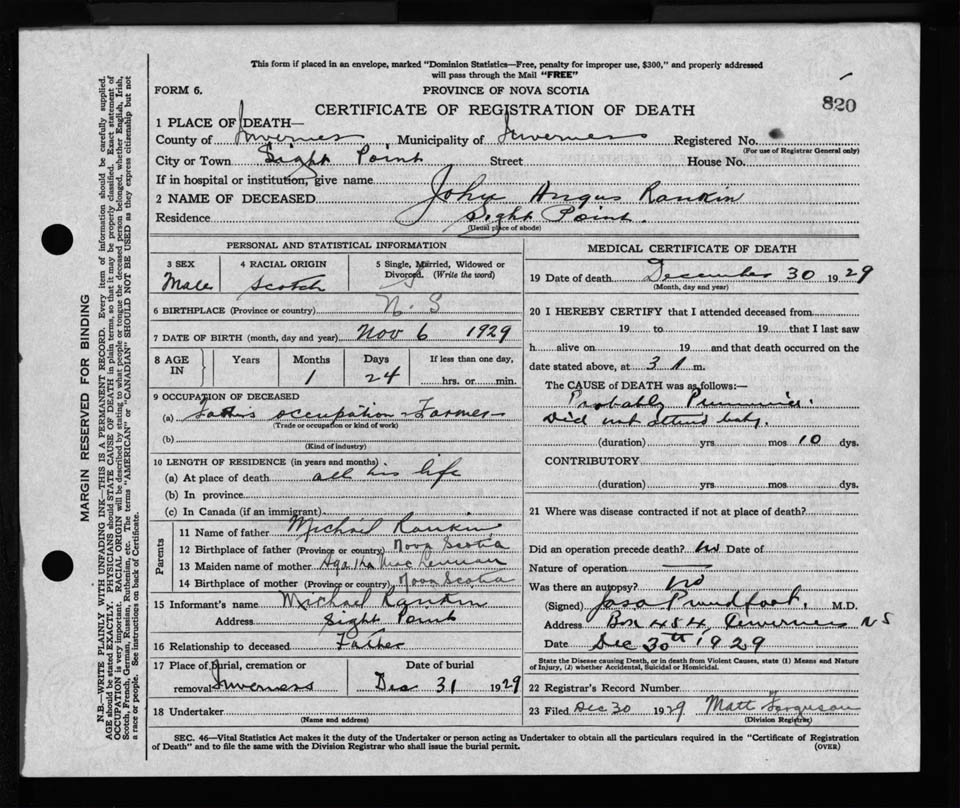 This form if placed in an envelope, marked "Dominion Statistics—Free, penalty for improper use, $300," and properly addressed
will pass through the Mail "FREE"
FORM 6.
PROVINCE OF NOVA SCOTIA
820
CERTIFICATE OF REGISTRATION OF DEATH
1 PLACE OF DEATH—
County of Inverness Municipality of Inverness Registered No.
(For use of Registrar General only)
City or Town Sight Point Street House No.
If in hospital or institution, give name
2 NAME OF DECEASED John Angus Rankin
Residence Sight Point.
(Usual place of abode)
PERSONAL AND STATISTICAL INFORMATION
3 SEX 4 RACIAL ORIGIN 5 Single, Married, Widowed or
Divorced. (Write the word)
Male Scotch S
6 BIRTHPLACE (Province or country) N. S
7 DATE OF BIRTH (month, day and year) Nov 6 1929
8 AGE IN Years Months Days If less than one day,
1 24 hrs. or min.
9 OCCUPATION OF DECEASED
(a) Father's occupation - Farmer
(Trade or occupation or kind of work)
(b)
(Kind of industry)
10 LENGTH OF RESIDENCE (in years and months)
(a) At place of death all his life
(b) In province
(c) In Canada (if an immigrant)
Parents
11 Name of father Michael Rankin
12 Birthplace of father (Province or country) Nova Scotia
13 Maiden name of mother Agatha MacLennan
14 Birthplace of mother (Province or country) Nova Scotia
15 Informant's name Michael Rankin
Address Sight Point
16 Relationship to deceased Father
17 Place of burial, cremation or Date of burial
removal Inverness Dec 31 1929
18 Undertaker
(Name and address)
MEDICAL CERTIFICATE OF DEATH
19 Date of death December 30 1929
(Month, day and year)
20 I HEREBY CERTIFY that I attended deceased from
19 to 19 that I last saw
h alive on 19 and that death occurred on the
date stated above, at 3 A m.
The CAUSE of DEATH was as follows:—
Probably
Did not attend baby.
(duration) yrs mos 10 dys.
CONTRIBUTORY
(duration) yrs mos dys.
21 Where was disease contracted if not at place of death?
Did an operation precede death? no Date of
Nature of operation
Was there an autopsy? no
(Signed) Proudfoot, M.D.
Address Box 454, Inverness N S
Date Dec 30th 1929
State the Disease causing Death, or in death from Violent Causes, state (1) Means and Nature
of Injury, (2) whether Accidental, Suicidal or Homicidal.
22 Registrar's Record Number
23 Filed Dec 30 1929 Matt Ferguson
(Division Registrar)
SEC. 46—Vital Statistics Act makes it the duty of the Undertaker or person acting as Undertaker to obtain all the particulars required in the "Certificate of Registration
of Death" and to file the same with the Division Registrar who shall issue the burial permit.
(OVER)
MARGIN RESERVED FOR BINDING
N.B.—WRITE PLAINLY WITH UNFADING INK—THIS IS A PERMANENT RECORD. Every item of information should be carefully supplied.
AGE should be stated EXACTLY. PHYSICIANS should STATE CAUSE OF DEATH in plain terms, so that it may be properly classified. Exact statement of
OCCUPATION is very important. RACIAL ORIGIN will be described by stating to what people or tongue the deceased person belonged, whether English, Irish,
Scotch, French, German, Russian, Ruthenian, etc. The terms "AMERICAN" or "CANADIAN" SHOULD NOT BE USED as they express citizenship but not
a race or people. See instructions on back of Certificate.